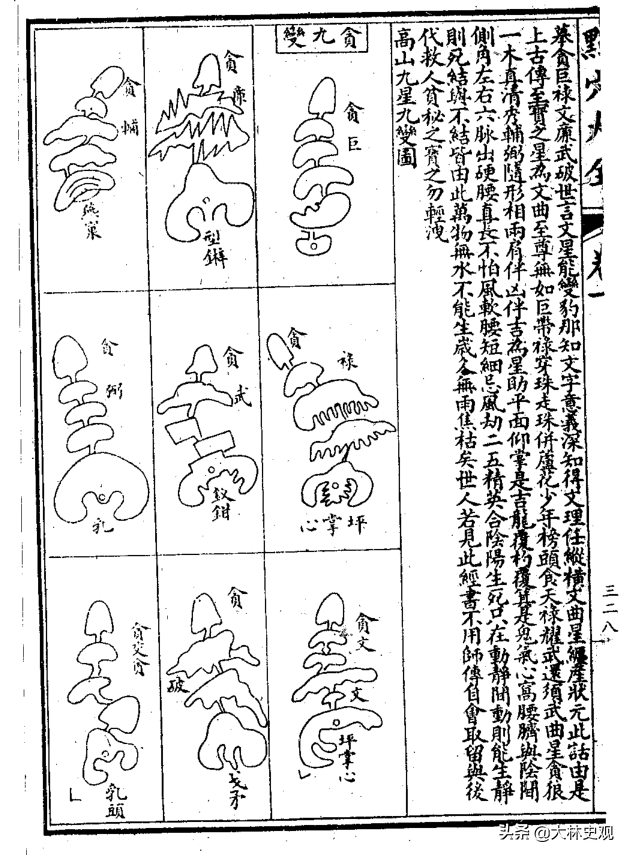 點穴大全
卷一
三二八
暮貪巨祿文廉武破世言文星能變豹那知文字意義深知得文理任縱橫文曲星纏產狀元此話由是
上古傳至寶之星為文曲至尊無如巨帶祿穿珠走珠併蘆花少年榜頭食天祿耀武還須武曲星貪狼
一木真清秀輔弼隨形相兩肩伴凶伴吉為星助平面仰掌是吉龍覆杓覆箕是鬼氣心窩腰臍與陰間
側角左右六脉出硬腰直長不怕風軟腰短細忌風劫二五精英合陰陽生死只在動靜間動則能生靜
則死結與不結皆由此萬物無水不能生歲久無雨焦枯矣世人若見此經書不用師傳自會取留與後
代救人貧秘之寶之勿輕洩
高山九星九變圖
貪九變
貪巨
貪廉
型鐴
貪輔
燕巢
貪祿
坪掌心
貪武
釵鉗
貪弼
乳
貪文
文
坪掌心
貪
破
戈矛
貪交貪
乳頭
头条 @大林史观